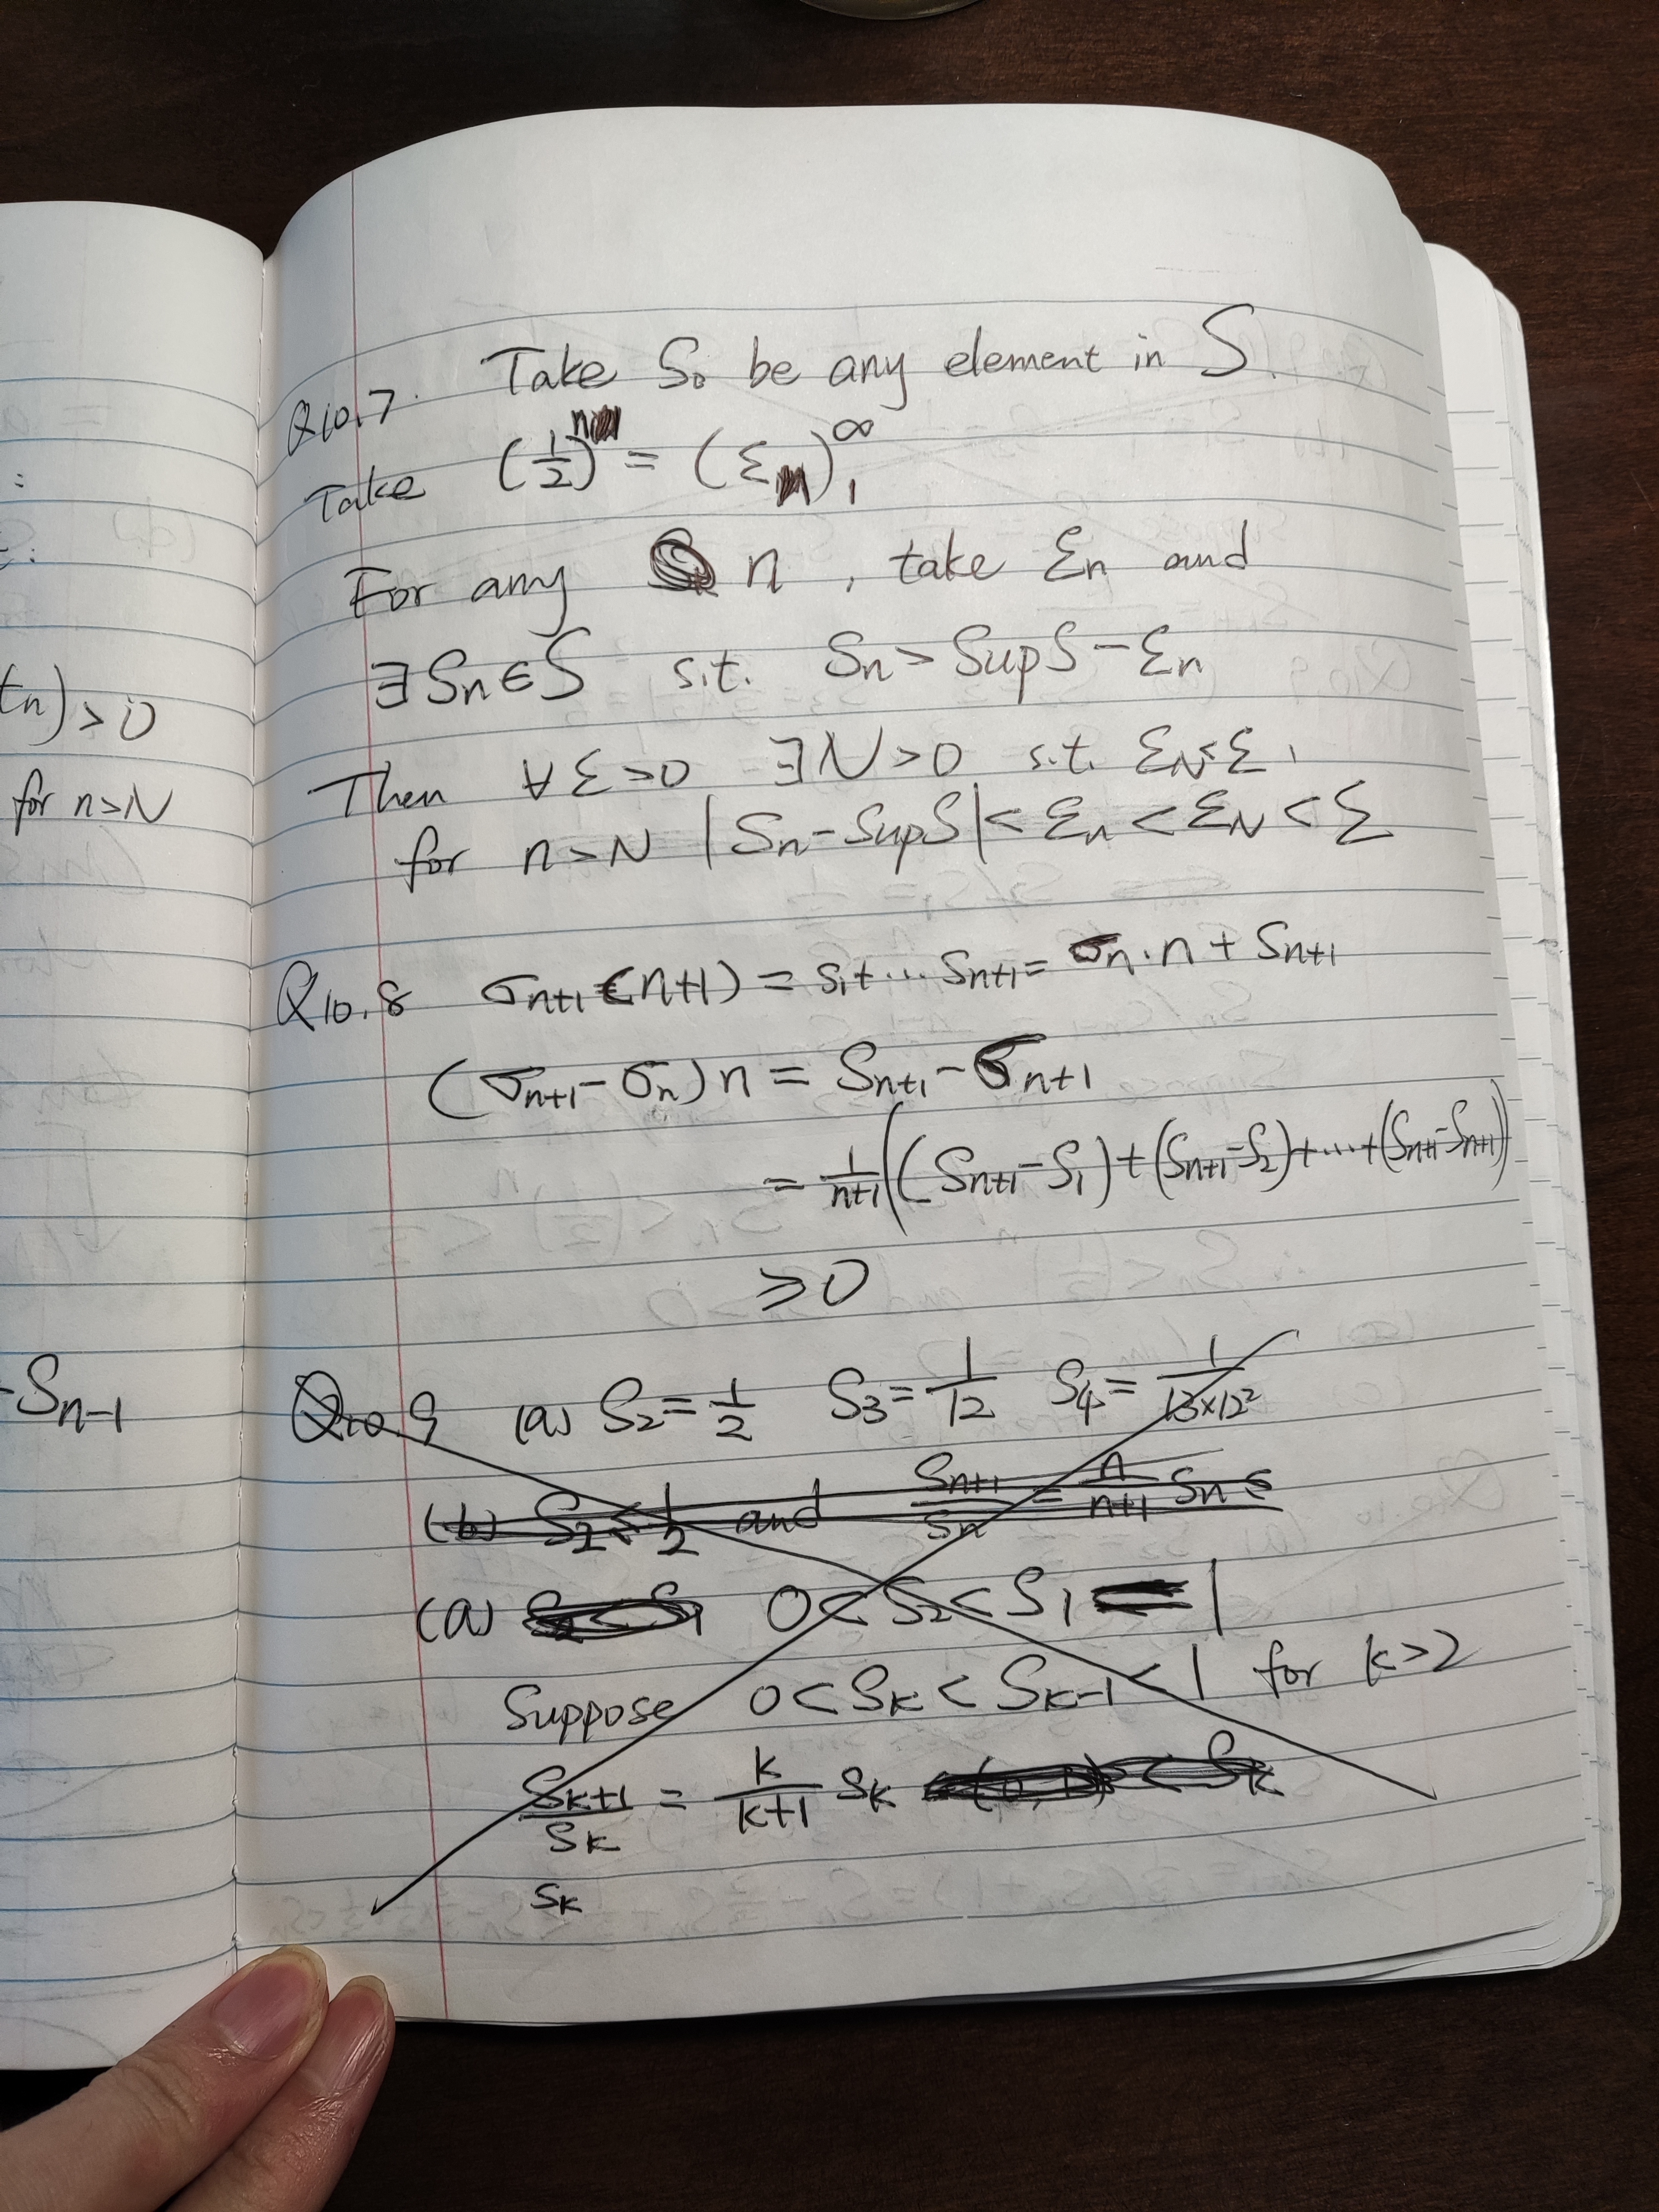 = a
:
t:
tn) > 0
for n>N
-Sn-1
Q10.7. Take S0 be any element in S.
Take (1/2)^n = (εn)_1^∞
For any n, take εn and
∃ Sn ∈ S s.t. Sn > SupS - εn
Then ∀ε>0 ∃N>0 s.t. εN<ε,
for n>N |Sn - SupS| < εn < εN < ε
Q10.8 σn+1 (n+1) = s1+... Sn+1 = σn·n + Sn+1
(σn+1 - σn) n = Sn+1 - σn+1
= 1/(n+1) ((Sn+1 - S1) + (Sn+1 - S2) + ... + (Sn+1 - Sn+1))
≥ 0
Q10.9 (a) S2 = 1/2 S3 = 1/12 S4 = 1/(13×12²)
(b) S2 ≤ 1/2 and Sn+1/Sn = n/(n+1) Sn ≤
(a) S2 < S1 0 < S2 < S1 = 1
Suppose 0 < Sk < Sk-1 < 1 for k>2
Sk+1/Sk = k/(k+1) Sk < Sk
Sk